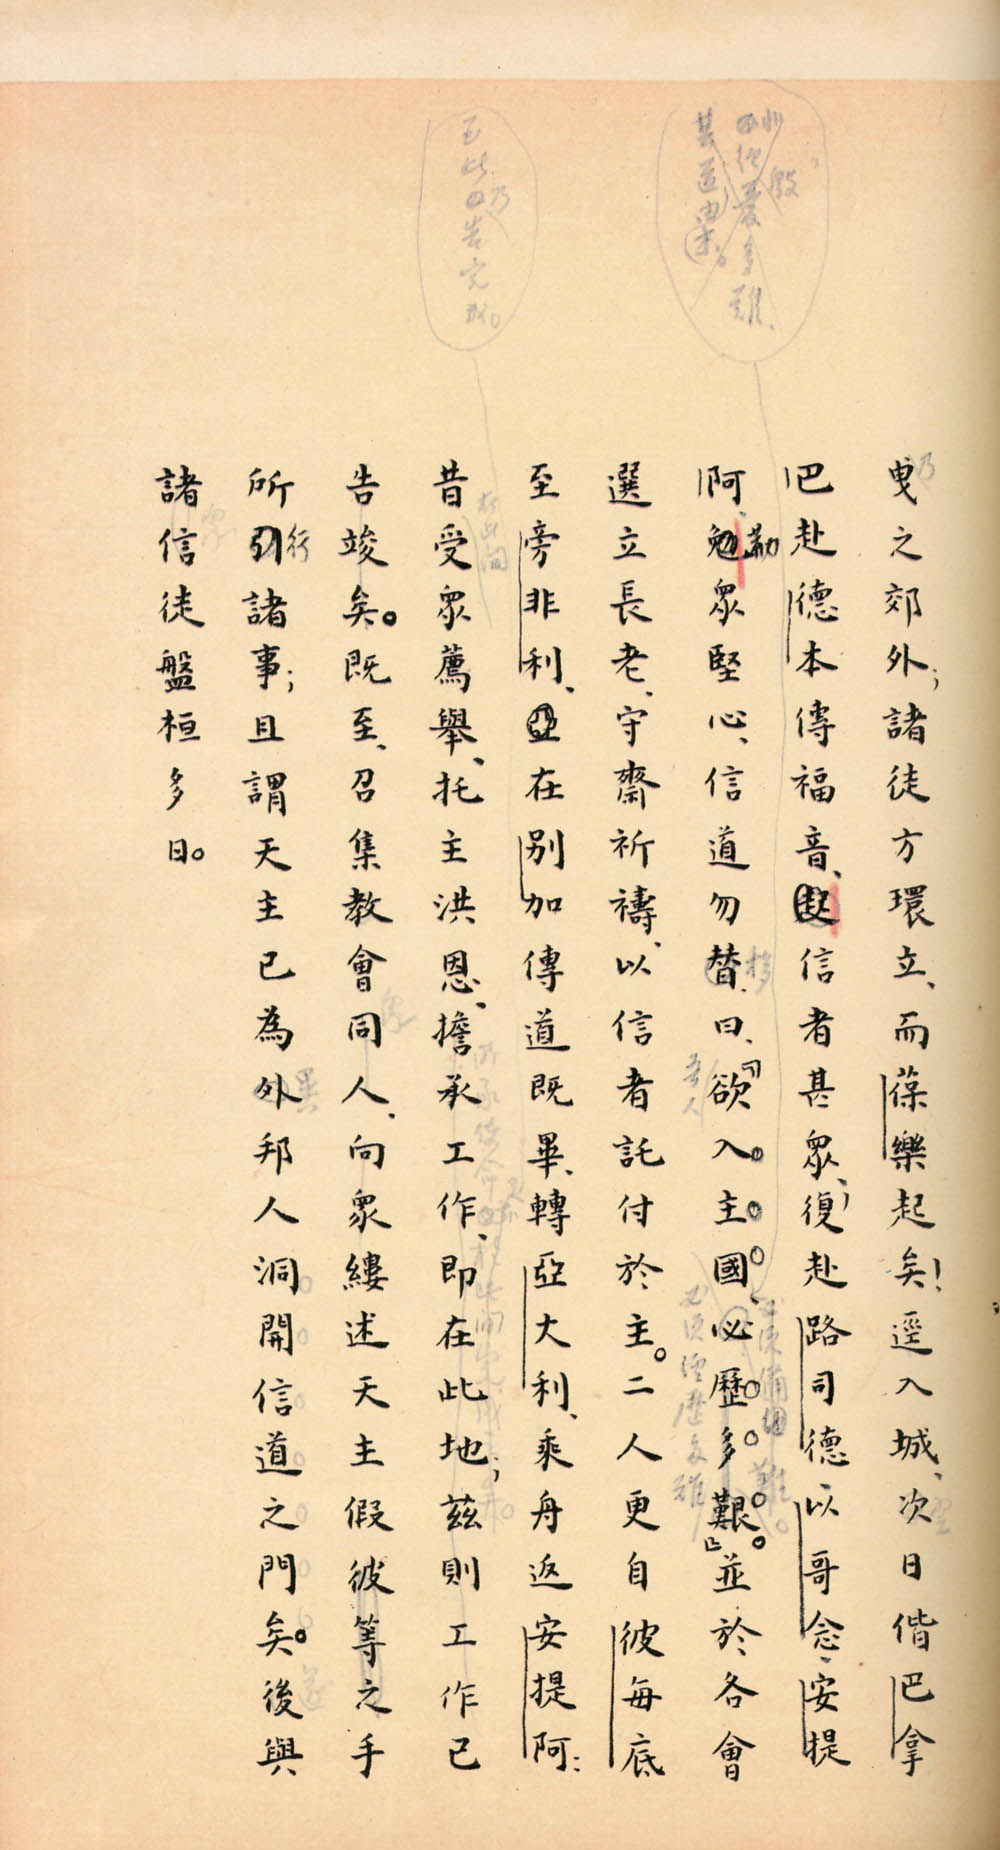 曳之郊外；諸徒方環立、而葆樂起矣！逕入城、次日偕巴拿
巴赴德本傳福音、信者甚眾、復赴路司德以哥念、安提
阿、勉勒眾堅心、信道勿替、曰、『欲入主國、必歷多艱。』並於各會
選立長老、守齋祈禱、以信者託付於主。二人更自彼每底
至旁非利、亞在別加傳道既畢、轉亞大利、乘舟返安提阿：
昔受眾薦舉、托主洪恩、擔承工作、即在此地；茲則工作已
告竣矣。既至、召集教會同人、向眾縷述天主假彼等之手
所引行諸事；且謂天主已為外邦人洞開信道之門矣。後與
諸信徒盤桓多日。
至此乃告完成。
必須經歷多難
於此間
吾人
移
乃
翌
異